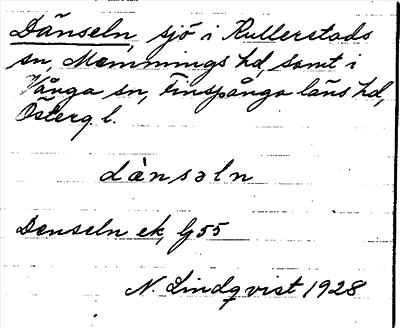 Dänseln, sjö i Kullerstads
sn, Memmings hd, samt i
Vånga sn, Finspånga läns hd,
Österg. l.
dànsəln
Denseln ek, lj 55
N. Lindqvist 1928